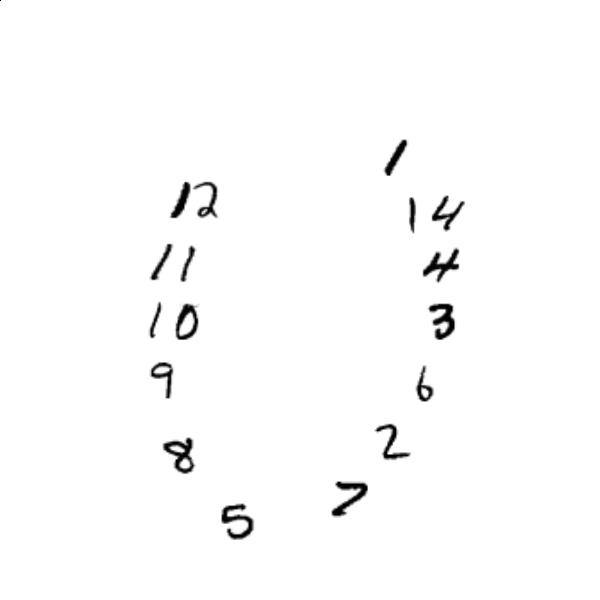 1
12 14
11 4
10 3
9 6
8 2
5 7